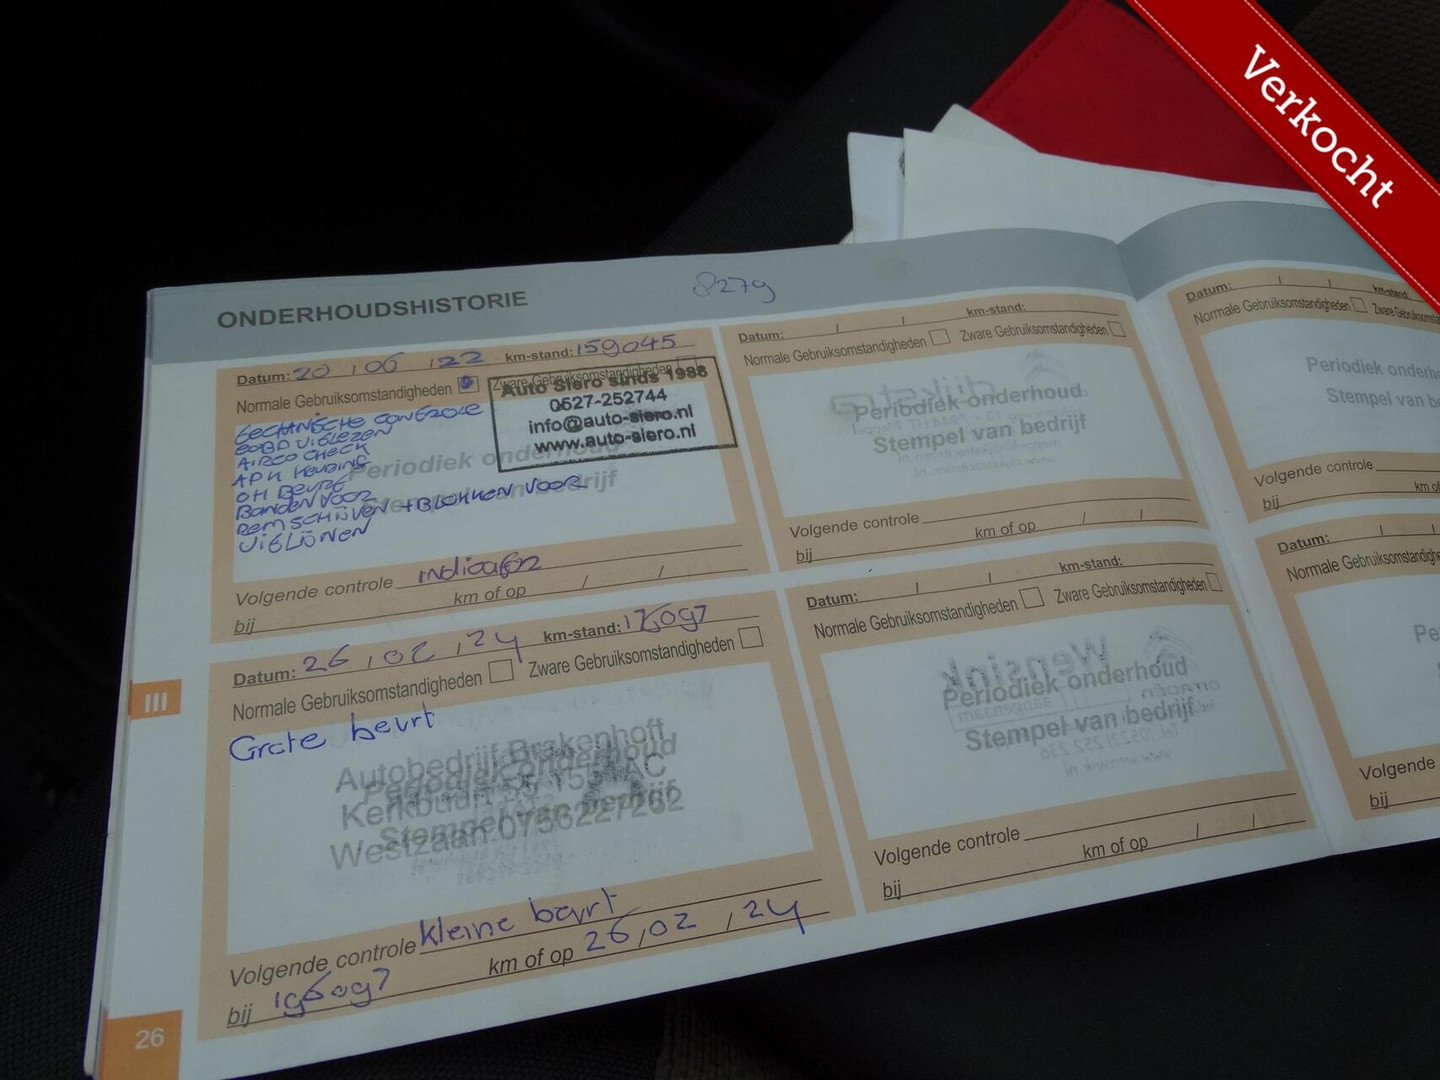 Verkocht
ONDERHOUDSHISTORIE
8279
Datum: 20 / 06 / 22 km-stand: 159045
Normale Gebruiksomstandigheden Zware Gebruiksomstandigheden
Auto Siero sinds 1988
0527-252744
info@auto-siero.nl
www.auto-siero.nl
EOBD UITLEZEN
AIRCO CHECK
APK KEURING
OH BEURT
BANDEN VOOR
REMSCHIJVEN + BLOKKEN VOOR
UITLIJNEN
Periodiek onderhoud
Stempel van bedrijf
Volgende controle
km of op / /
bij
Datum: 26 / 02 / 24 km-stand:
Normale Gebruiksomstandigheden Zware Gebruiksomstandigheden
Grote beurt
Autobedrijf Brakenhoft
Periodiek onderhoud
Stempel van bedrijf
Westzaan 0756227262
Volgende controle kleine beurt
km of op 26 / 02 / 24
bij 196097
III
26
Datum: / / km-stand:
Normale Gebruiksomstandigheden Zware Gebruiksomstandigheden
dijkstra
Periodiek onderhoud
Stempel van bedrijf
Volgende controle
km of op / /
bij
Datum: / / km-stand:
Normale Gebruiksomstandigheden Zware Gebruiksomstandigheden
Wensink
Periodiek onderhoud
Stempel van bedrijf
Volgende controle
km of op / /
bij
Datum: / / km-stand:
Normale Gebruiksomstandigheden Zware
Periodiek
Stempel van
Volgende controle
km of
bij
Datum: /
Normale Gebruiksomstandigheden
Volgende
bij